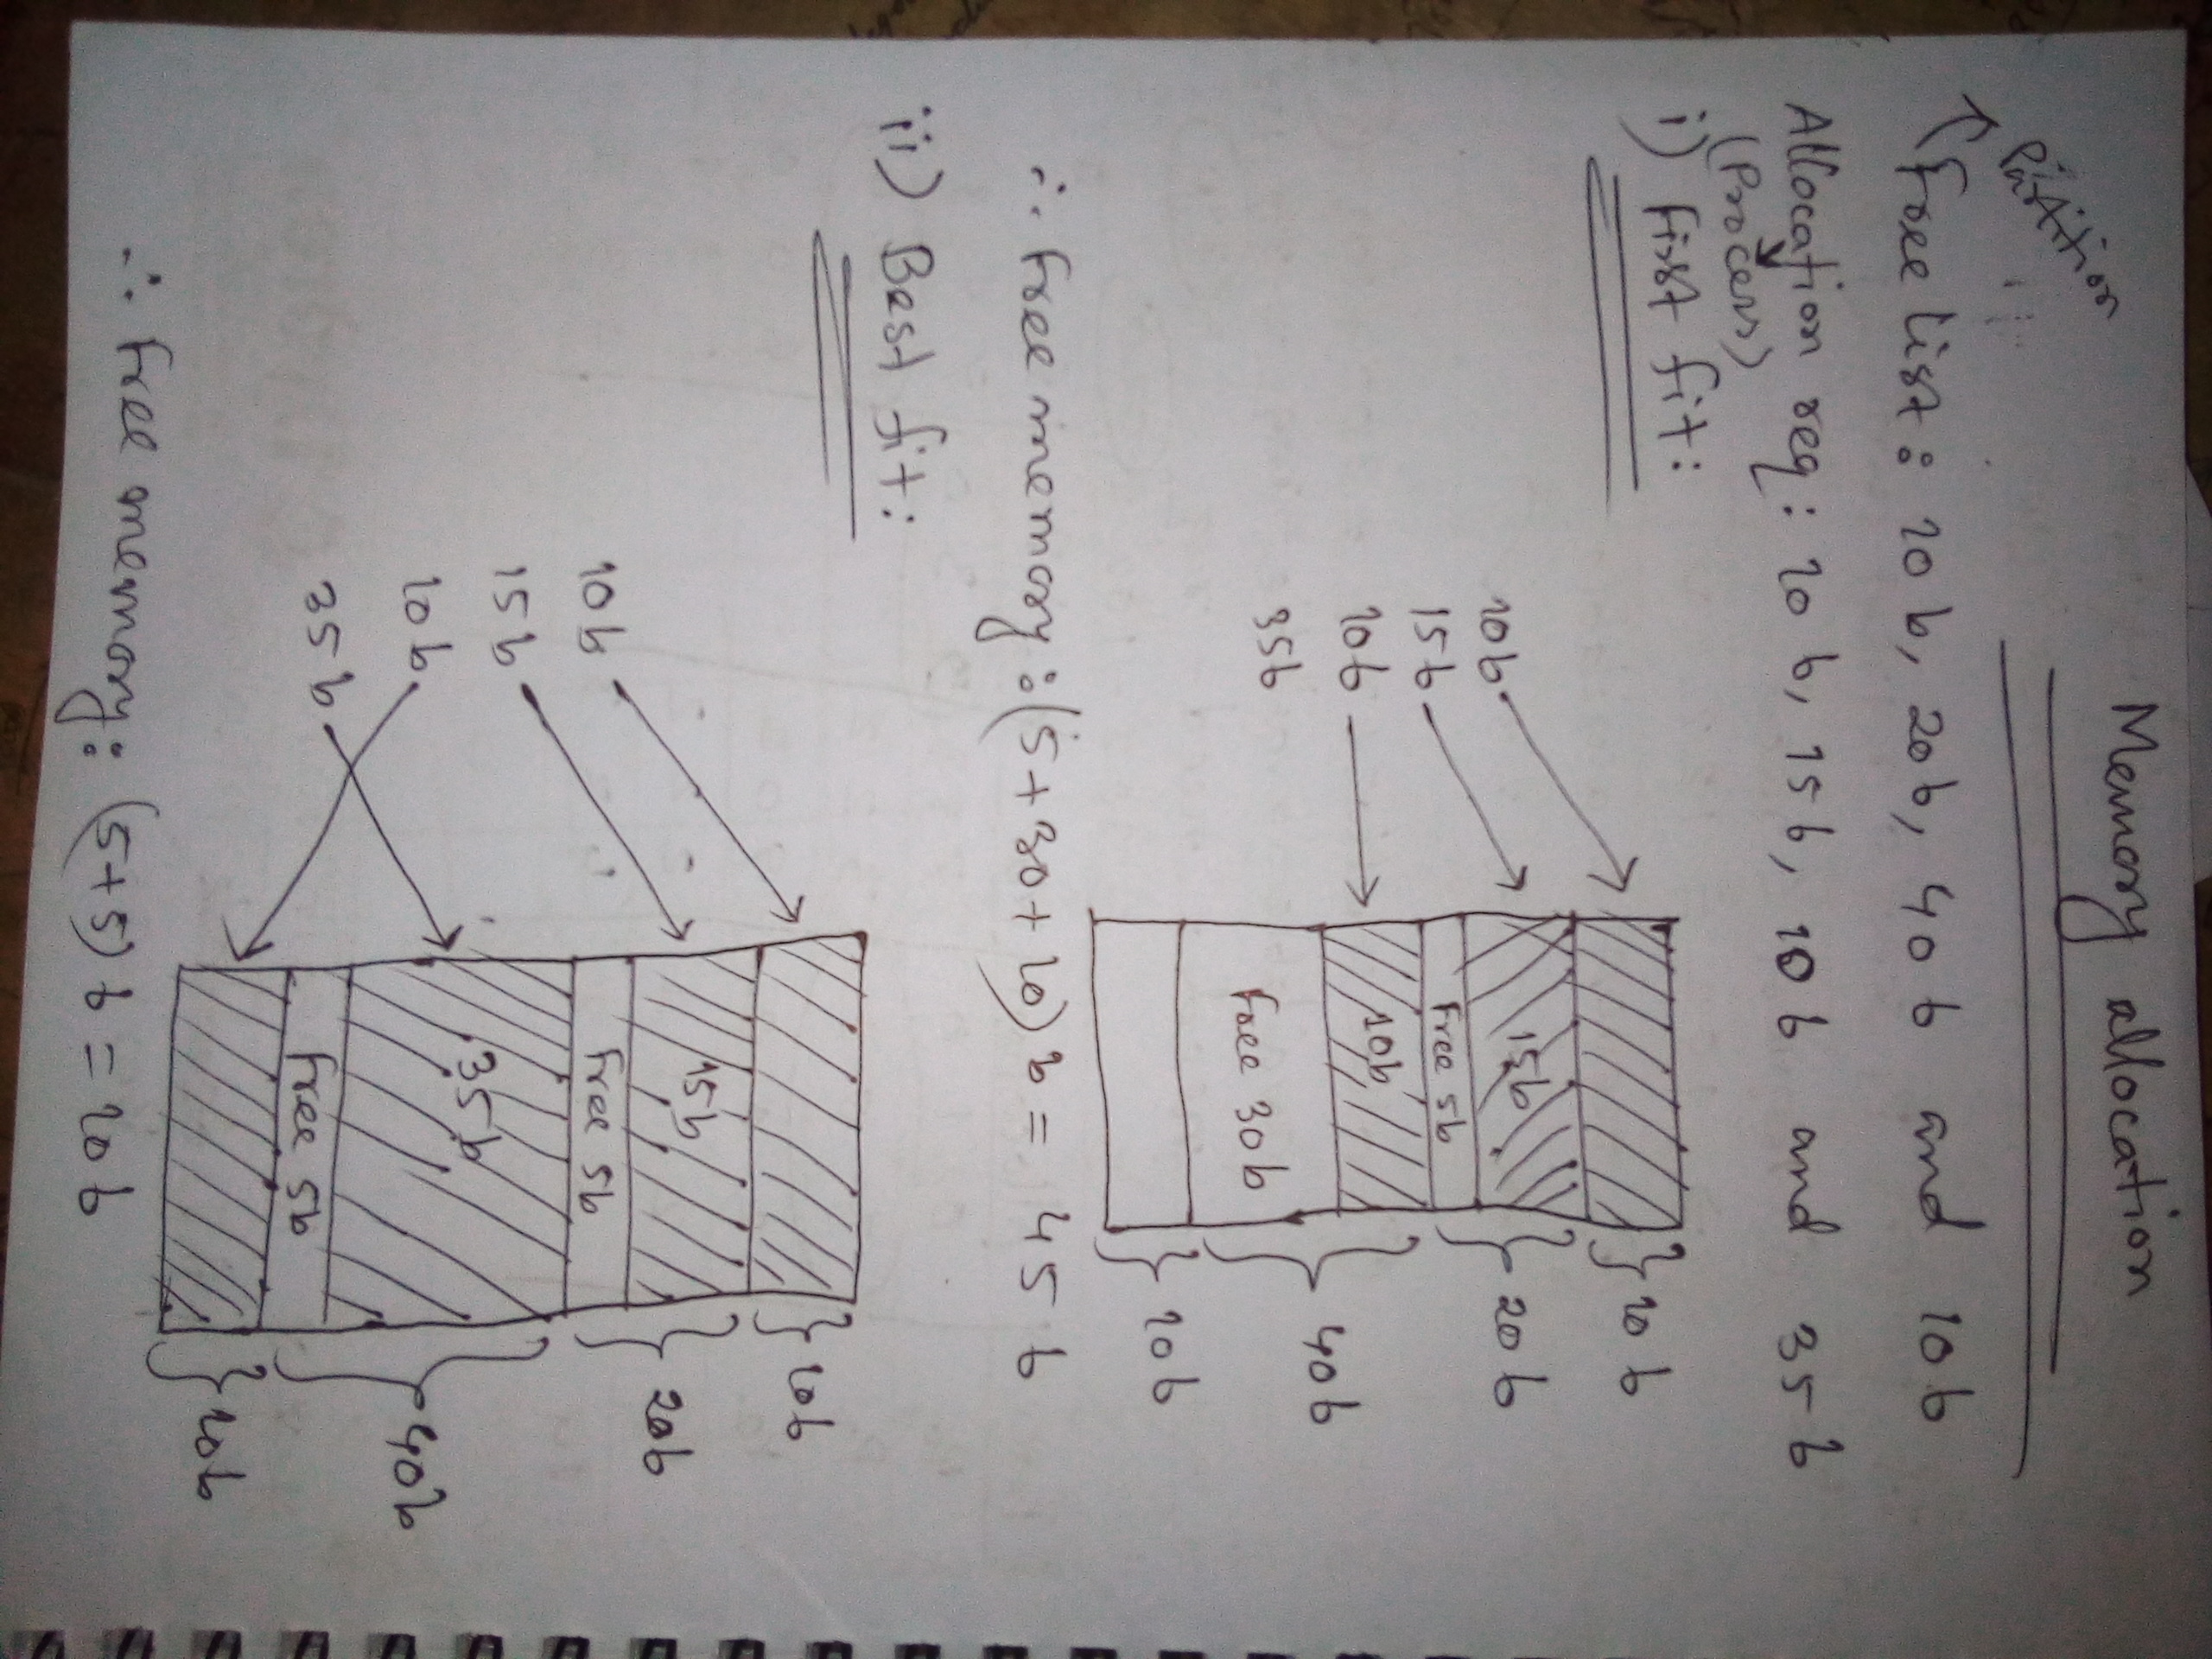 Memory allocation
Partition
Free list: 10 b, 20 b, 40 b and 10 b
Allocation req: 10 b, 15 b, 10 b and 35 b
(Process)
i) First fit:
10 b
15b
20 b
Free 5b
10b
40 b
Free 30 b
10 b
10b
15b
10b
35b
∴ Free memory: (5+30+10) b = 45 b
ii) Best fit:
10b
15b
20b
Free 5b
35b
40b
Free 5b
10b
10b
15b
10b
35b
∴ Free memory: (5+5) b = 10 b